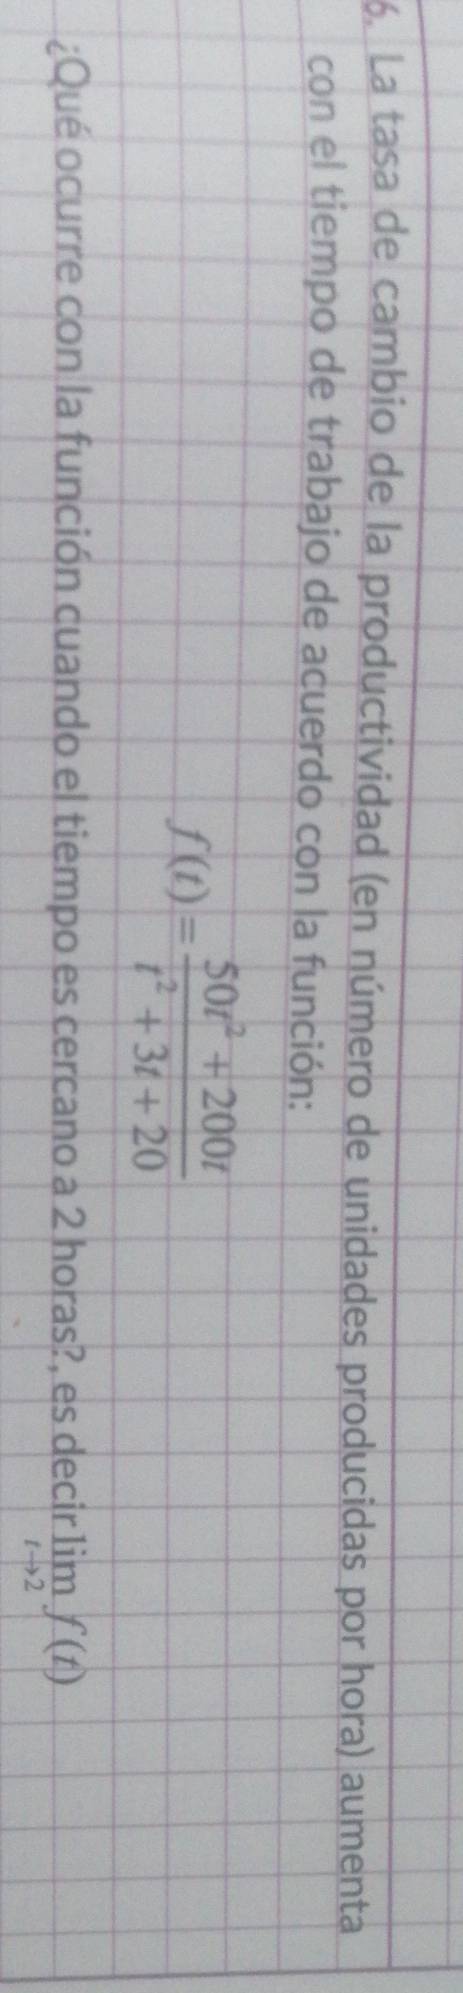 6. La tasa de cambio de la productividad (en número de unidades producidas por hora) aumenta
con el tiempo de trabajo de acuerdo con la función:
f(t) = (50t² + 200t) / (t² + 3t + 20)
¿Qué ocurre con la función cuando el tiempo es cercano a 2 horas?, es decir lim t→2 f(t)